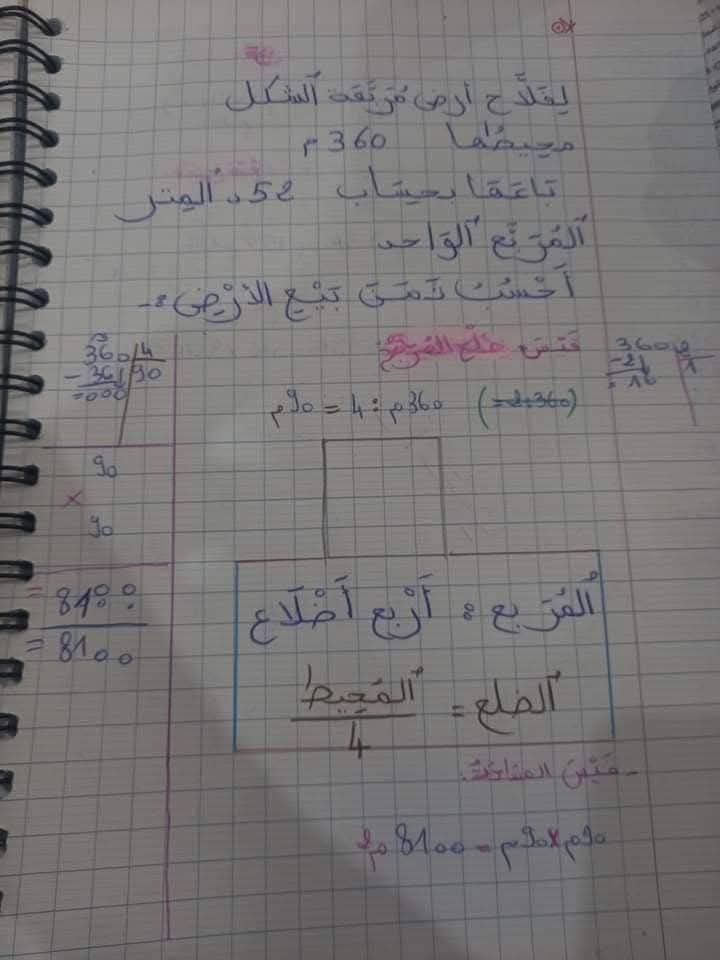 لِفَلَّاح أرض مُرَبَّعة الشكل
محيطُها 360 م
بَاعَهَا بحِسَاب 52 د المِتر
المُرَبَّع الوَاحد
أَحْسُبُ ثَمَنَ بَيْعِ الأَرْضِ :-
قَيْسُ ضلع المربع:
360م : 4 = 90م (360:2=)
360 4
- 36 90
= 000
3600
- 2 1
= 16
90
×
90
= 8100
= 8100
المُرَبع : أَرْبع أَضْلَاع
الضلع = المُحِيط / 4
- قَيْسُ المسَاحَة:
90م×90م = 8100 م2